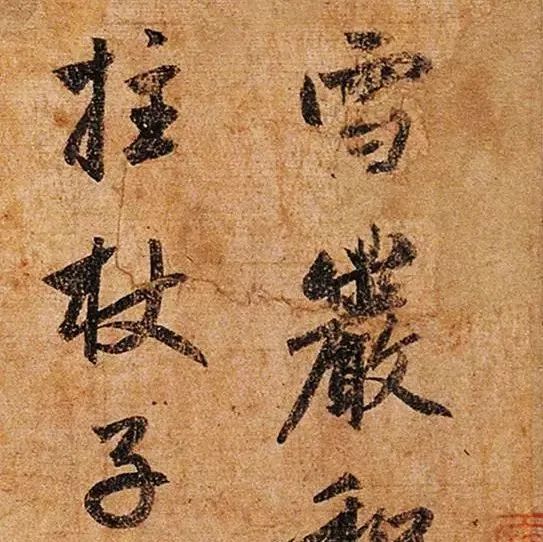 雪巖和
拄杖子